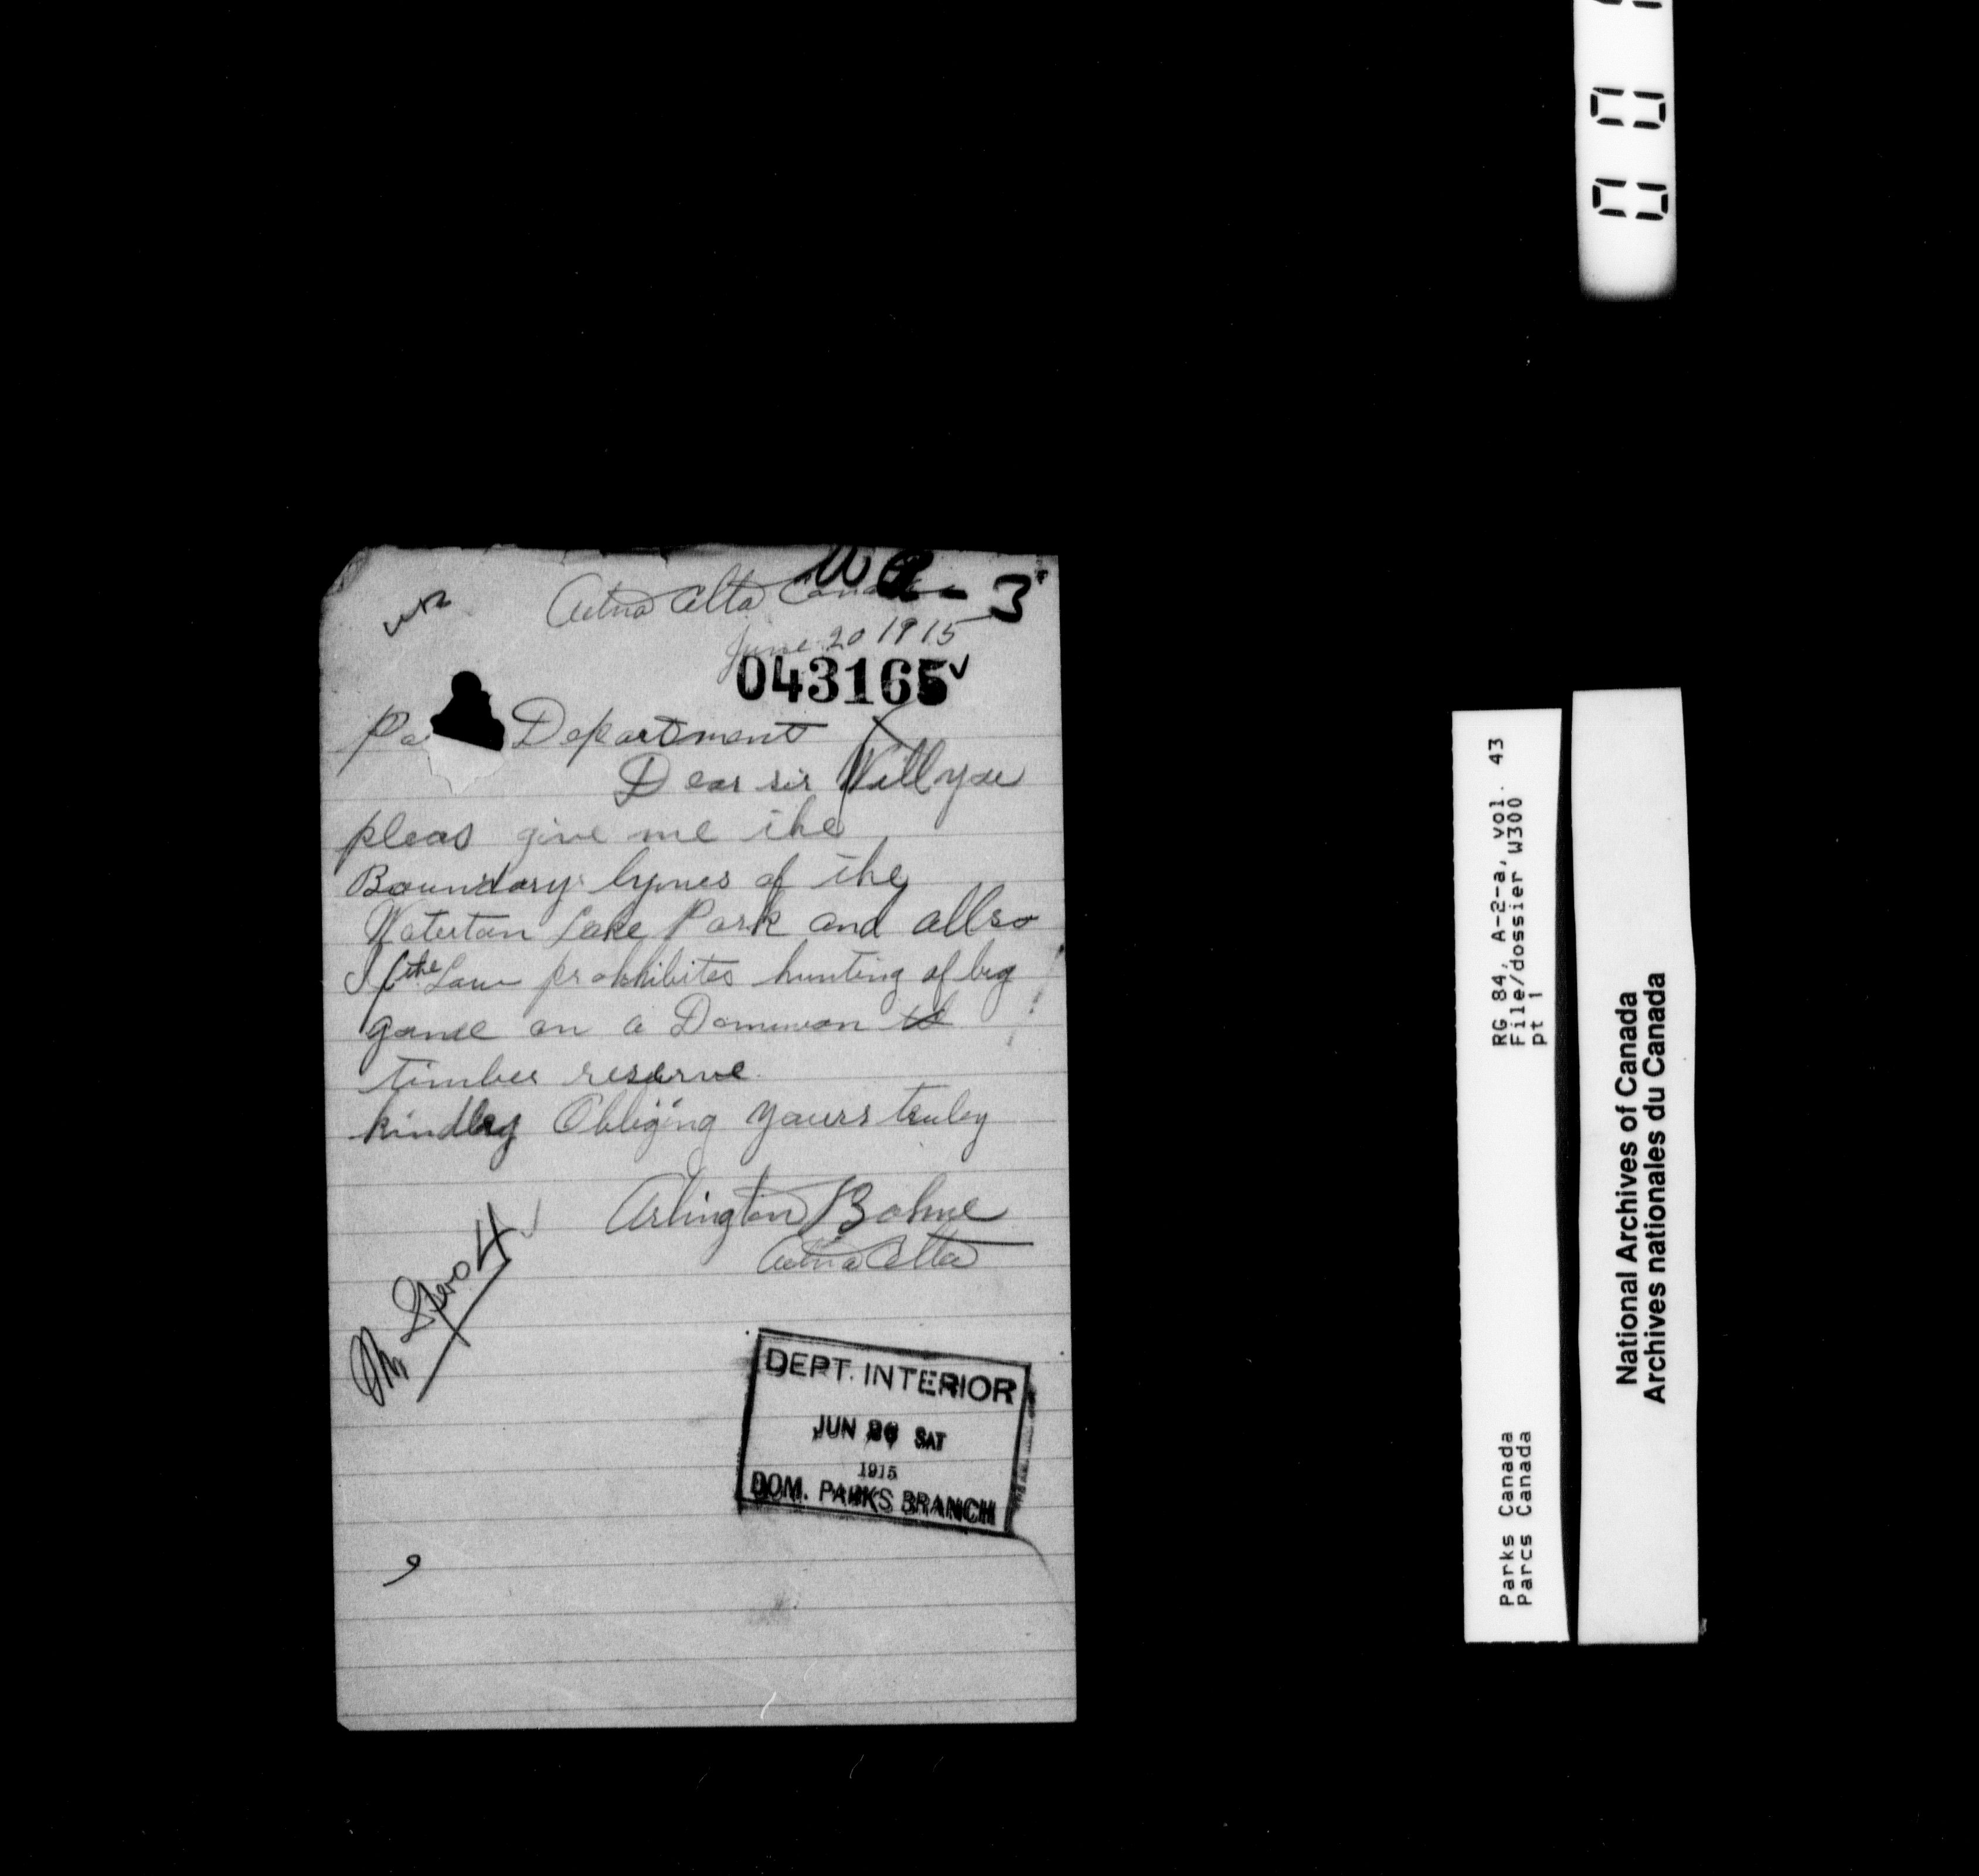 Aetna Alta Canada
W 2 - 3
June 20 1915
043165
Pa Department
Dear sir Will you
pleas give me the
Boundary lynes of the
Waterton Lake Park and allso
If the Law prohhibites hunting of big
game on a Dominion
timber reserve
kindley Obliging yours truley
Arlington Bohne
Aetna Alta
Mr
DEPT. INTERIOR
JUN 26 SAT
1915
DOM. PARKS BRANCH
9
RG 84, A-2-a, vol. 43
File/dossier W300
pt 1
Parks Canada
Parcs Canada
National Archives of Canada
Archives nationales du Canada